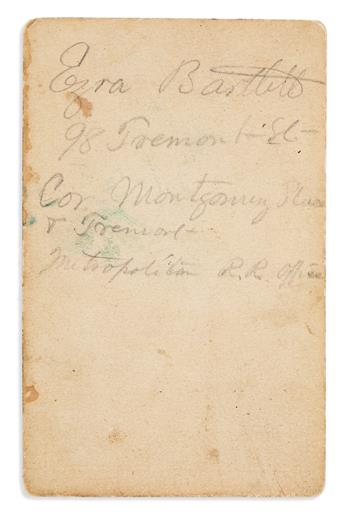 Ezra Bartlett
98 Tremont St
Cor Montgomery Place
& Tremont
Metropolitan R.R. Office